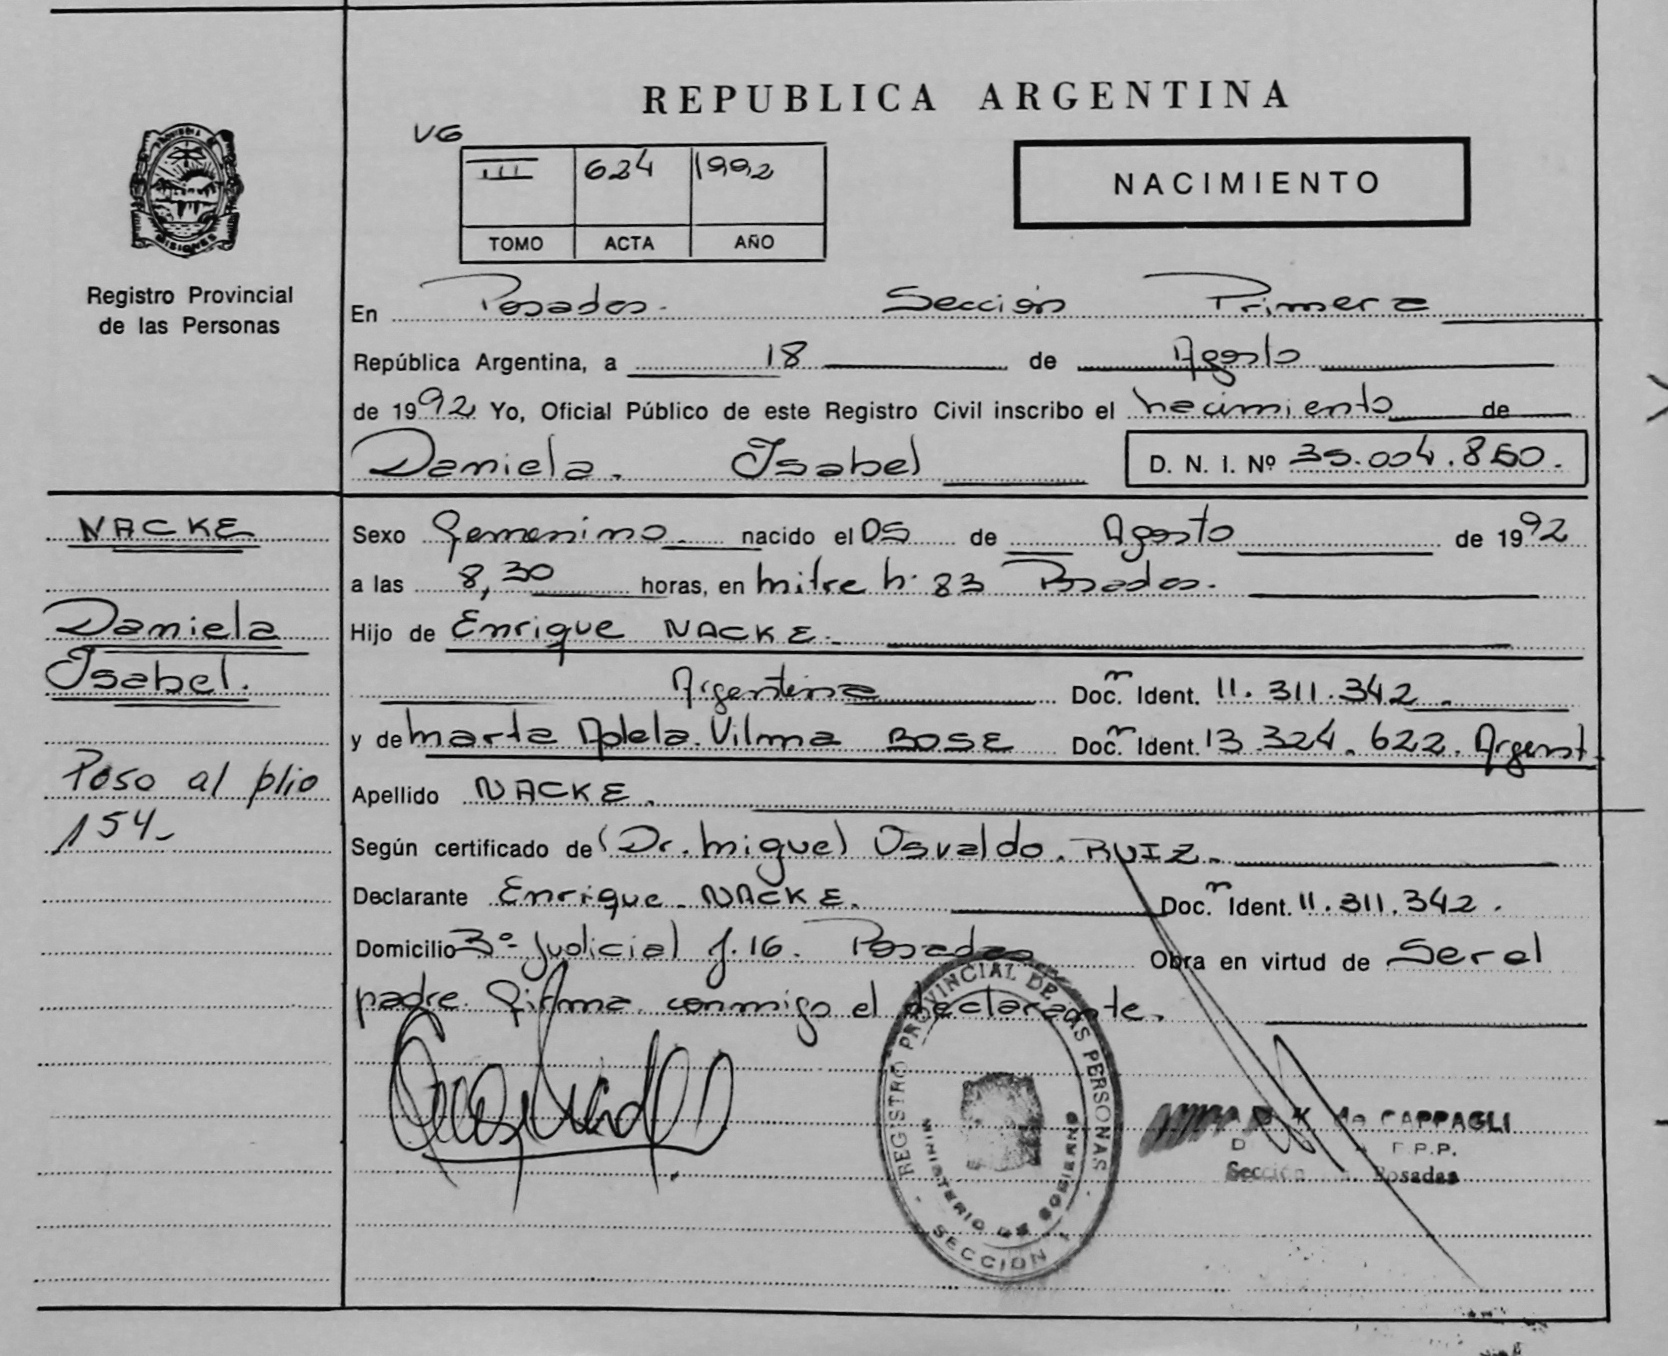 REPUBLICA ARGENTINA
VG
III 624 1992
TOMO ACTA AÑO
NACIMIENTO
PROVINCIA DE MISIONES
Registro Provincial
de las Personas
En Posadas. Sección Primera
República Argentina, a 18 de Agosto
de 1992 Yo, Oficial Público de este Registro Civil inscribo el nacimiento de
Daniela. Isabel D. N. I. Nº 35.004.860.
NACKE
Daniela
Isabel.
Paso al plio
154-
Sexo Femenino. nacido el 05 de Agosto de 1992
a las 8,30 horas, en Mitre n. 83 Posadas.
Hijo de Enrique NACKE.
Argentina Doc.m Ident. 11.311.342.
y de Marta Adela. Vilma BOSE Doc.m Ident. 13.324.622. Argent.
Apellido NACKE.
Según certificado de (Dr. Miguel) Osvaldo. RUIZ.
Declarante Enrique NACKE. Doc.m Ident. 11.311.342.
Domicilio 3º Judicial J.16. Posadas Obra en virtud de Ser el
padre. Firma conmigo el declarante.
REGISTRO PROVINCIAL DE LAS PERSONAS
MINISTERIO DE GOBIERNO
SECCION 1
de CAPPAGLI
Sección Posadas